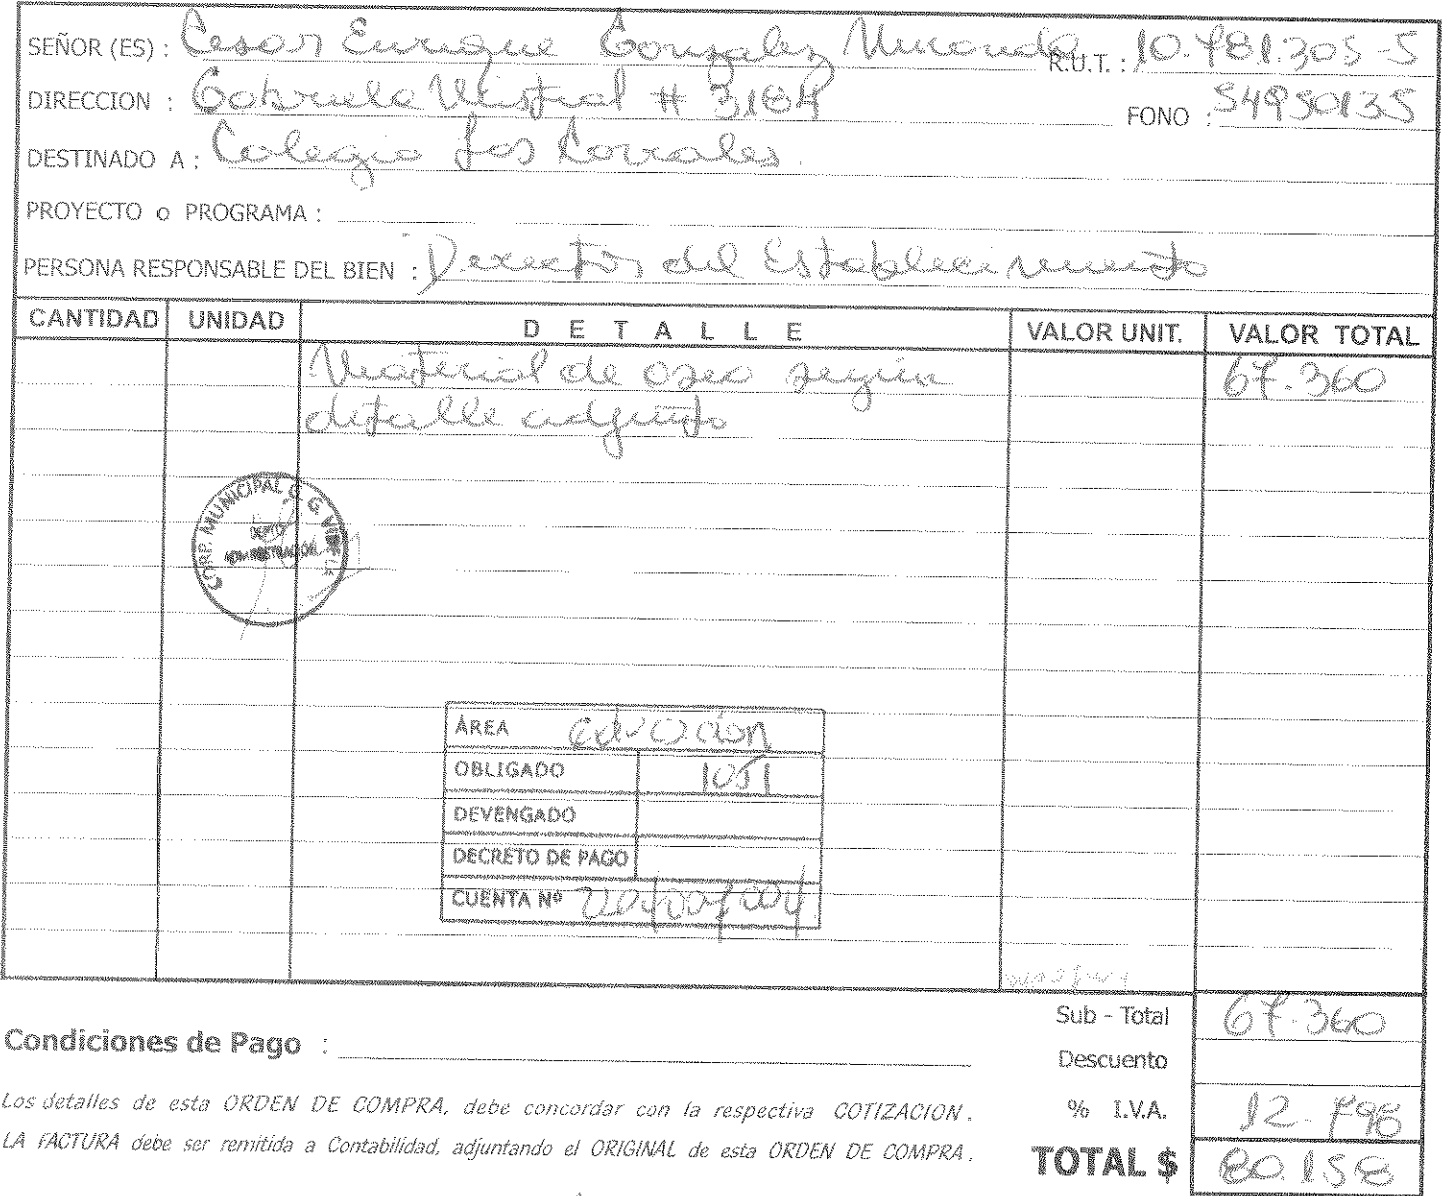 SEÑOR (ES) : Cesar Enrique Gonzalez Miranda R.U.T. : 10.781.305-5
DIRECCION : Gabriela Mistral # 3184 FONO : 54950135
DESTINADO A : Colegio Los Corrales.
PROYECTO o PROGRAMA :
PERSONA RESPONSABLE DEL BIEN : Director del Establecimiento
CANTIDAD UNIDAD DETALLE VALOR UNIT. VALOR TOTAL
Material de aseo según 67.360
detalle adjunto
CORP. MUNICIPAL G. G. V.
DEPTO
ADMINISTRACION
ÁREA educación
OBLIGADO 1051
DEVENGADO
DECRETO DE PAGO
CUENTA Nº
Sub - Total 67.360
Condiciones de Pago :
Descuento
Los detalles de esta ORDEN DE COMPRA, debe concordar con la respectiva COTIZACION.
% I.V.A. 12.798
LA FACTURA debe ser remitida a Contabilidad, adjuntando el ORIGINAL de esta ORDEN DE COMPRA.
TOTAL $ 80.158